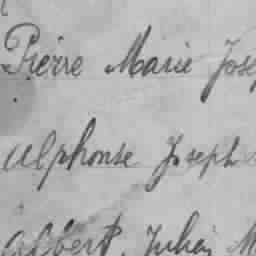 Pierre Marie Jose
Alphonse Joseph
Albert, Julien M